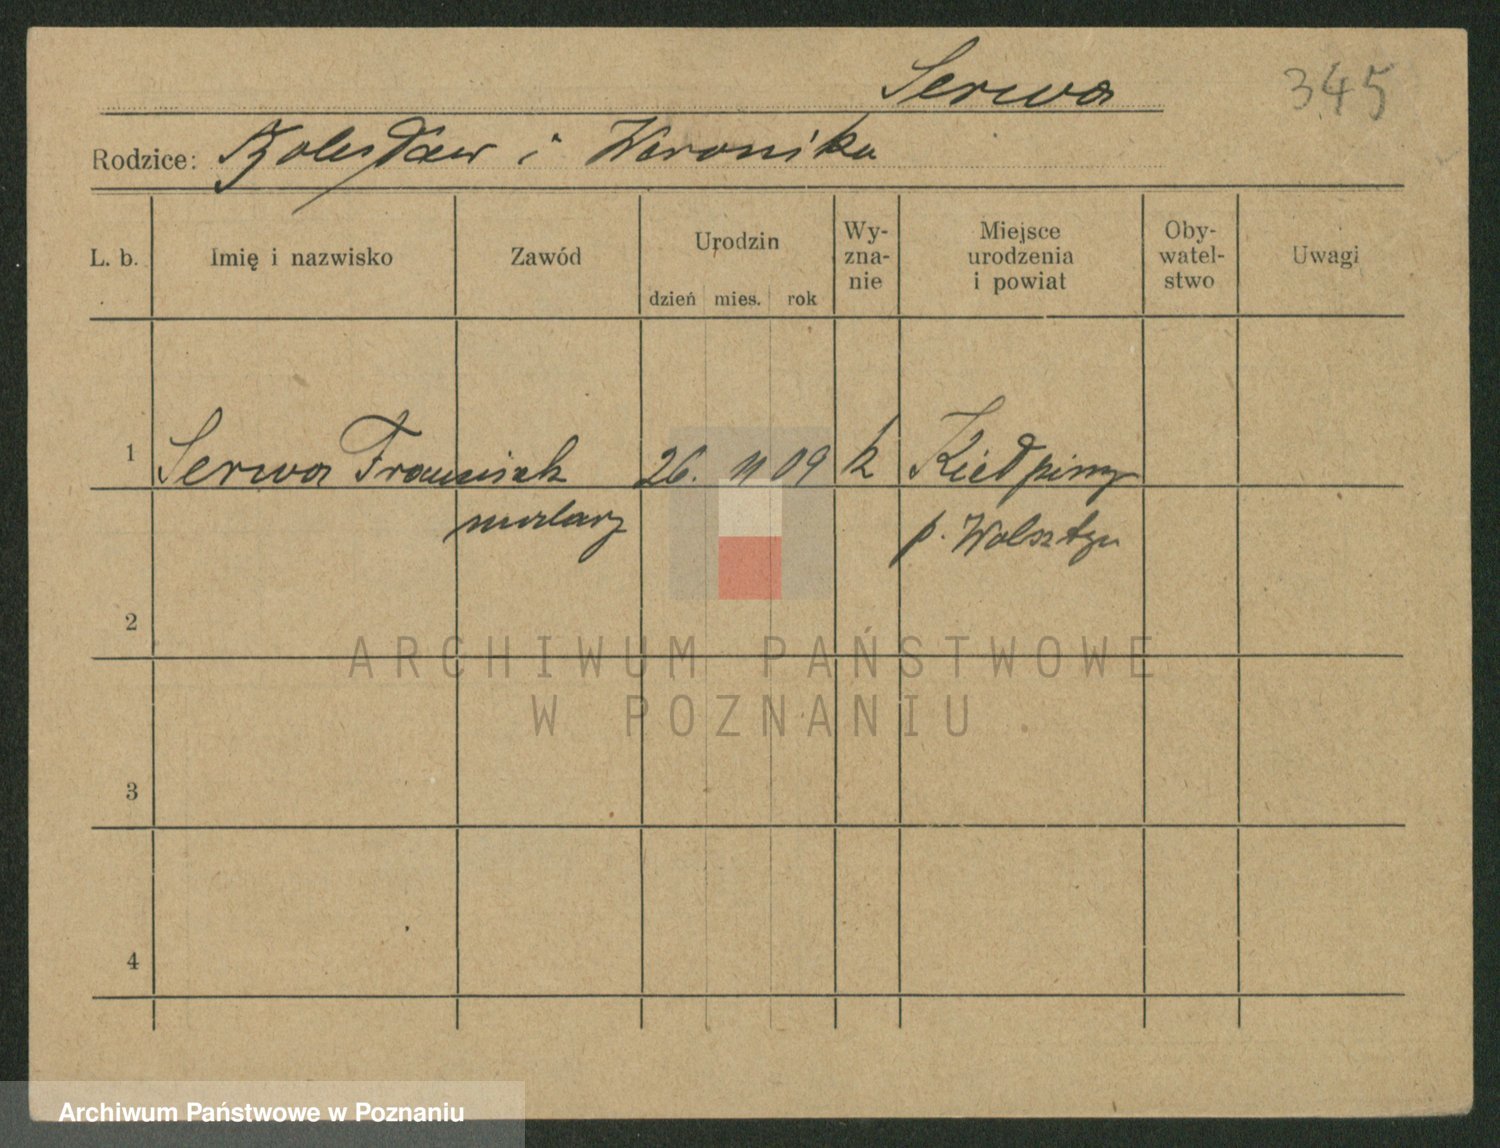 Serwa
345
Rodzice: Bolesław i Weronika
L. b. Imię i nazwisko Zawód Urodzin dzień mies. rok Wy-zna-nie Miejsce urodzenia i powiat Oby-watel-stwo Uwagi
1 Serwa Franciszek 26. 11 09 k Kiełpiny
malarz p. Wolsztyn
2
ARCHIWUM PAŃSTWOWE
W POZNANIU
3
4
Archiwum Państwowe w Poznaniu